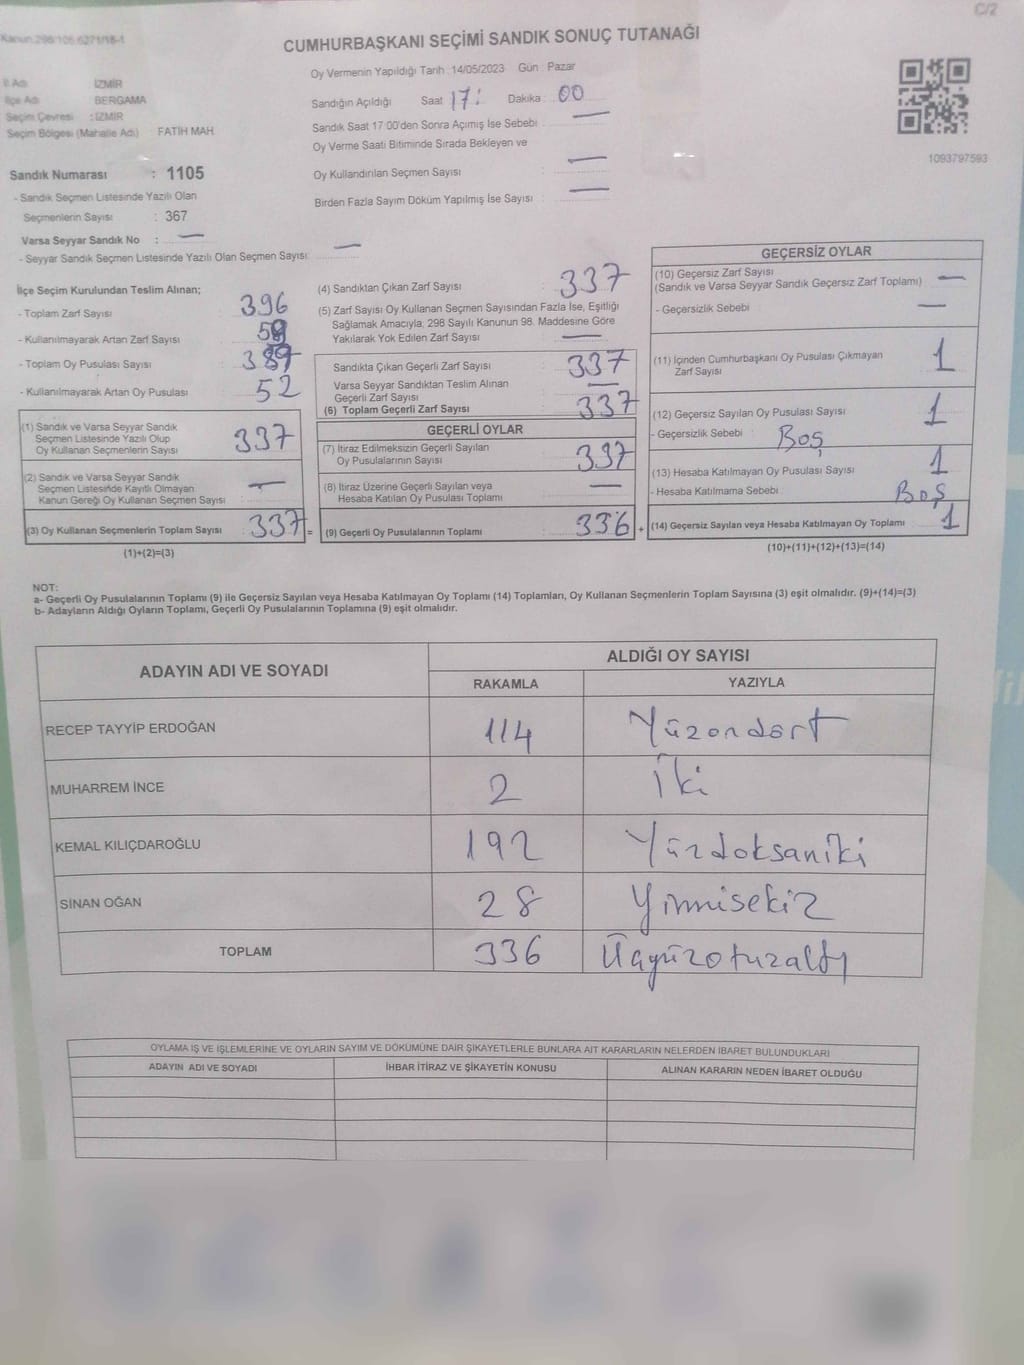 C/2
Kanun:298/105 6271/18-1
CUMHURBAŞKANI SEÇİMİ SANDIK SONUÇ TUTANAĞI
İl Adı İZMİR
İlçe Adı BERGAMA
Seçim Çevresi : İZMİR
Seçim Bölgesi (Mahalle Adı) FATİH MAH.
Oy Vermenin Yapıldığı Tarih : 14/05/2023 Gün : Pazar
Sandığın Açıldığı Saat 17: Dakika : 00
Sandık Saat 17:00'den Sonra Açımış İse Sebebi : —
Oy Verme Saati Bitiminde Sırada Bekleyen ve
Oy Kullandırılan Seçmen Sayısı : —
Birden Fazla Sayım Döküm Yapılmış İse Sayısı : —
1093797593
Sandık Numarası : 1105
- Sandık Seçmen Listesinde Yazılı Olan
Seçmenlerin Sayısı : 367
Varsa Seyyar Sandık No : —
- Seyyar Sandık Seçmen Listesinde Yazılı Olan Seçmen Sayısı: —
İlçe Seçim Kurulundan Teslim Alınan;
- Toplam Zarf Sayısı : 396
- Kullanılmayarak Artan Zarf Sayısı :
- Toplam Oy Pusulası Sayısı : 389
- Kullanılmayarak Artan Oy Pusulası : 52
(1) Sandık ve Varsa Seyyar Sandık
Seçmen Listesinde Yazılı Olup
Oy Kullanan Seçmenlerin Sayısı : 337
(2) Sandık ve Varsa Seyyar Sandık
Seçmen Listesinde Kayıtlı Olmayan
Kanun Gereği Oy Kullanan Seçmen Sayısı : —
(3) Oy Kullanan Seçmenlerin Toplam Sayısı : 337 =
(1)+(2)=(3)
(4) Sandıktan Çıkan Zarf Sayısı : 337
(5) Zarf Sayısı Oy Kullanan Seçmen Sayısından Fazla İse, Eşitliği
Sağlamak Amacıyla, 298 Sayılı Kanunun 98. Maddesine Göre
Yakılarak Yok Edilen Zarf Sayısı : —
Sandıkta Çıkan Geçerli Zarf Sayısı : 337
Varsa Seyyar Sandıktan Teslim Alınan
Geçerli Zarf Sayısı : —
(6) Toplam Geçerli Zarf Sayısı : 337
GEÇERLİ OYLAR
(7) İtiraz Edilmeksizin Geçerli Sayılan
Oy Pusulalarının Sayısı : 337
(8) İtiraz Üzerine Geçerli Sayılan veya
Hesaba Katılan Oy Pusulası Toplamı : —
(9) Geçerli Oy Pusulalarının Toplamı : 336 +
GEÇERSİZ OYLAR
(10) Geçersiz Zarf Sayısı
(Sandık ve Varsa Seyyar Sandık Geçersiz Zarf Toplamı) : —
- Geçersizlik Sebebi : —
(11) İçinden Cumhurbaşkanı Oy Pusulası Çıkmayan
Zarf Sayısı : 1
(12) Geçersiz Sayılan Oy Pusulası Sayısı : 1
- Geçersizlik Sebebi : Boş
(13) Hesaba Katılmayan Oy Pusulası Sayısı : 1
- Hesaba Katılmama Sebebi : Boş
(14) Geçersiz Sayılan veya Hesaba Katılmayan Oy Toplamı : 1
(10)+(11)+(12)+(13)=(14)
NOT:
a- Geçerli Oy Pusulalarının Toplamı (9) ile Geçersiz Sayılan veya Hesaba Katılmayan Oy Toplamı (14) Toplamları, Oy Kullanan Seçmenlerin Toplam Sayısına (3) eşit olmalıdır. (9)+(14)=(3)
b- Adayların Aldığı Oyların Toplamı, Geçerli Oy Pusulalarının Toplamına (9) eşit olmalıdır.
ADAYIN ADI VE SOYADI ALDIĞI OY SAYISI
RAKAMLA YAZIYLA
RECEP TAYYİP ERDOĞAN 114 Yüzondört
MUHARREM İNCE 2 İki
KEMAL KILIÇDAROĞLU 192 Yüzdoksaniki
SİNAN OĞAN 28 Yirmisekiz
TOPLAM 336 Üçyüzotuzaltı
OYLAMA İŞ VE İŞLEMLERİNE VE OYLARIN SAYIM VE DÖKÜMÜNE DAİR ŞİKAYETLERLE BUNLARA AİT KARARLARIN NELERDEN İBARET BULUNDUKLARI
ADAYIN ADI VE SOYADI İHBAR İTİRAZ VE ŞİKAYETİN KONUSU ALINAN KARARIN NEDEN İBARET OLDUĞU